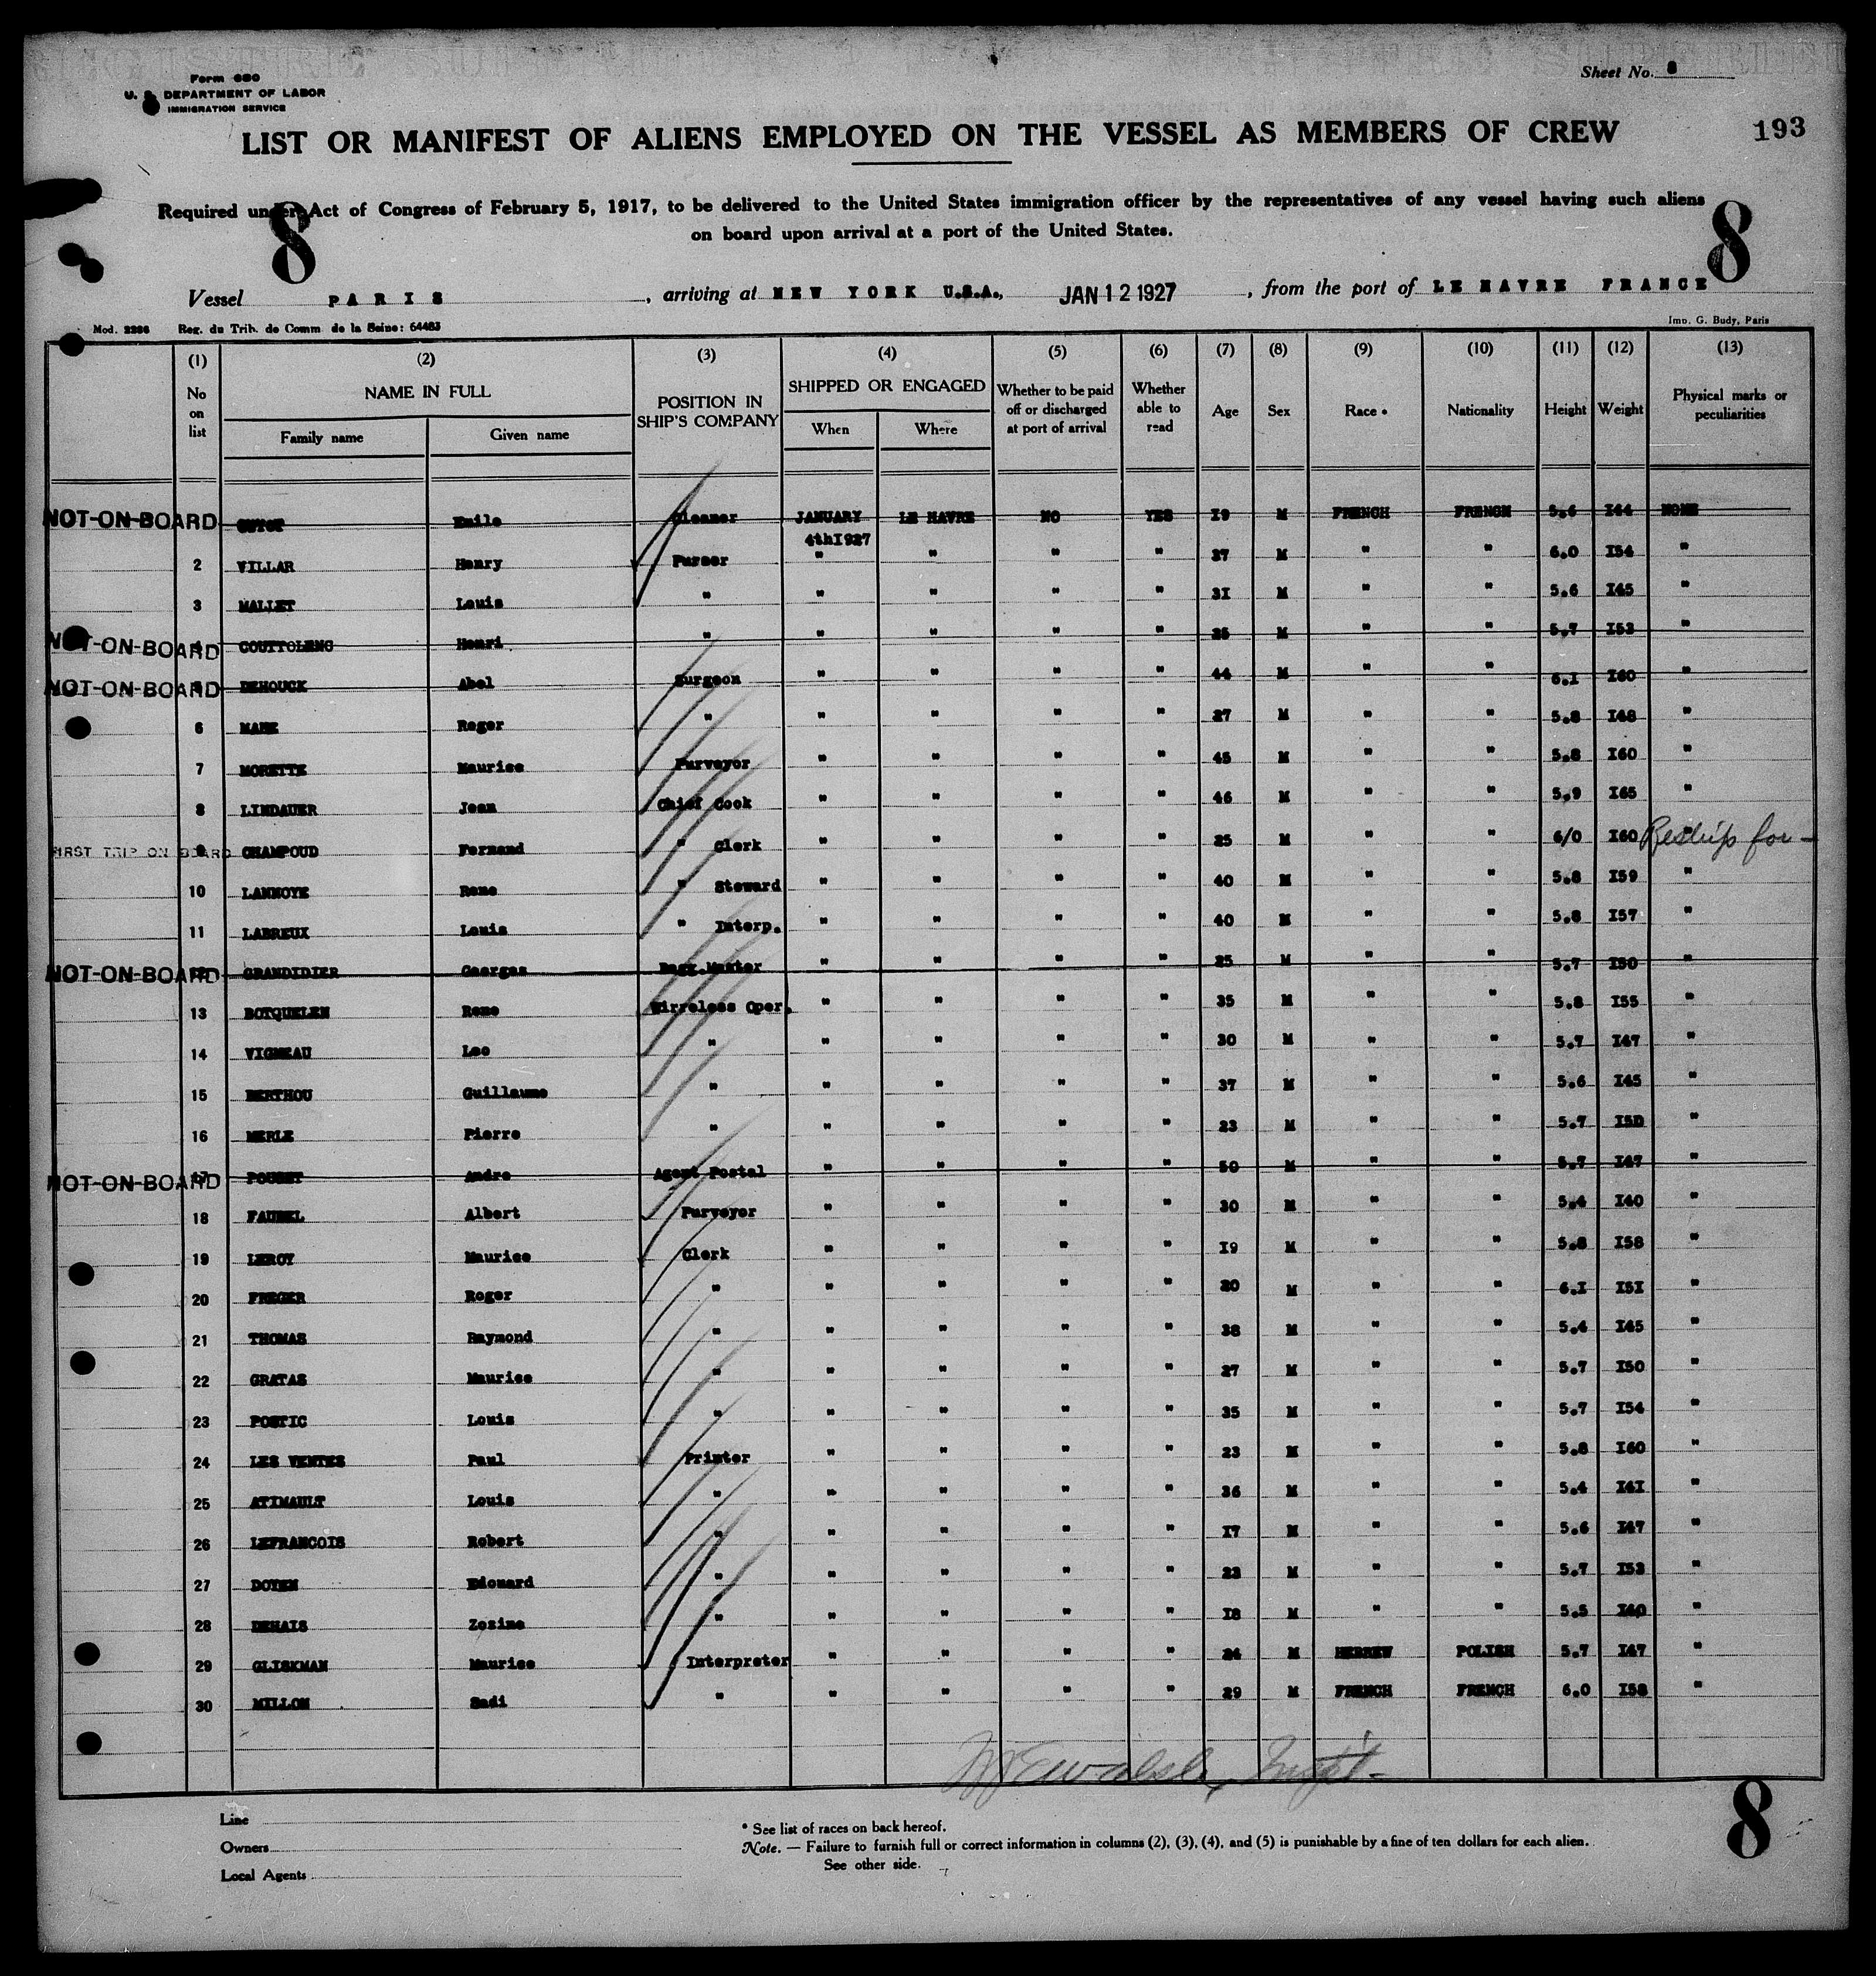 Form 680
U. S. DEPARTMENT OF LABOR
IMMIGRATION SERVICE
Sheet No. 8
LIST OR MANIFEST OF ALIENS EMPLOYED ON THE VESSEL AS MEMBERS OF CREW
193
Required under Act of Congress of February 5, 1917, to be delivered to the United States immigration officer by the representatives of any vessel having such aliens
on board upon arrival at a port of the United States.
8 8
Vessel PARIS, arriving at NEW YORK U.S.A., JAN 12 1927, from the port of LE HAVRE FRANCE
Mod. 2286 Reg. du Trib. de Comm. de la Seine: 64483 Imp. G. Budy, Paris
(1) (2) (3) (4) (5) (6) (7) (8) (9) (10) (11) (12) (13)
No on list NAME IN FULL Family name Given name POSITION IN SHIP'S COMPANY SHIPPED OR ENGAGED When Where Whether to be paid off or discharged at port of arrival Whether able to read Age Sex Race * Nationality Height Weight Physical marks or peculiarities
NOT-ON-BOARD GUYOT Emile Cleaner JANUARY 4th I927 LE HAVRE NO YES I9 M FRENCH FRENCH 5.6 I44 NONE
2 VILLAR Henry Purser " " " " 37 M " " 6.0 I54 "
3 MALLET Louis " " " " " 3I M " " 5.6 I45 "
NOT-ON-BOARD 4 COUTTOLENC Henri " " " " " 25 M " " 5.7 I53 "
NOT-ON-BOARD DEHOUCK Abel Surgeon " " " " 44 M " " 6.I I60 "
6 MANE Roger " " " " " 27 M " " 5.8 I48 "
7 MORETTE Maurice Purveyor " " " " 45 M " " 5.8 I60 "
8 LINDAUER Jean Chief Cook " " " " 46 M " " 5.9 I65 "
FIRST TRIP ON BOARD 9 CHAMPOUD Fernand " Clerk " " " " 25 M " " 6/0 I60 " Reship for -
10 LANNOYE Rene " Steward " " " " 40 M " " 5.8 I59 "
11 LABREUX Louis " Interp. " " " " 40 M " " 5.8 I57 "
NOT-ON-BOARD 12 GRANDIDIER Georges Bagg.Master " " " " 25 M " " 5.7 I50 "
13 BOTQUELEN Rene Wirreless Oper. " " " " 35 M " " 5.8 I55 "
14 VIGNEAU Leo " " " " " 30 M " " 5.7 I47 "
15 BERTHOU Guillaume " " " " " 37 M " " 5.6 I45 "
16 MERLE Pierre " " " " " 23 M " " 5.7 I50 "
NOT-ON-BOARD 17 POUGET Andre Agent Postal " " " " 50 M " " 5.7 I47 "
18 FAUBEL Albert Purveyor " " " " 30 M " " 5.4 I40 "
19 LEROY Maurice Clerk " " " " I9 M " " 5.8 I58 "
20 FREGER Roger " " " " " 20 M " " 6.I I5I "
21 THOMAS Raymond " " " " " 38 M " " 5.4 I45 "
22 GRATAS Maurice " " " " " 27 M " " 5.7 I50 "
23 POSTIC Louis " " " " " 35 M " " 5.7 I54 "
24 LES VENTES Paul Printer " " " " 23 M " " 5.8 I60 "
25 ATIMAULT Louis " " " " " 36 M " " 5.4 I4I "
26 LEFRANCOIS Robert " " " " " I7 M " " 5.6 I47 "
27 DOYEN Edouard " " " " " 22 M " " 5.7 I53 "
28 DEHAIS Zosime " " " " " I8 M " " 5.5 I40 "
29 GLISKMAN Maurice Interpreter " " " " 24 M HEBREW POLISH 5.7 I47 "
30 MILLON Sadi " " " " " 29 M FRENCH FRENCH 6.0 I58 "
Line
Owners
Local Agents
* See list of races on back hereof.
Note. — Failure to furnish full or correct information in columns (2), (3), (4), and (5) is punishable by a fine of ten dollars for each alien.
See other side.
8